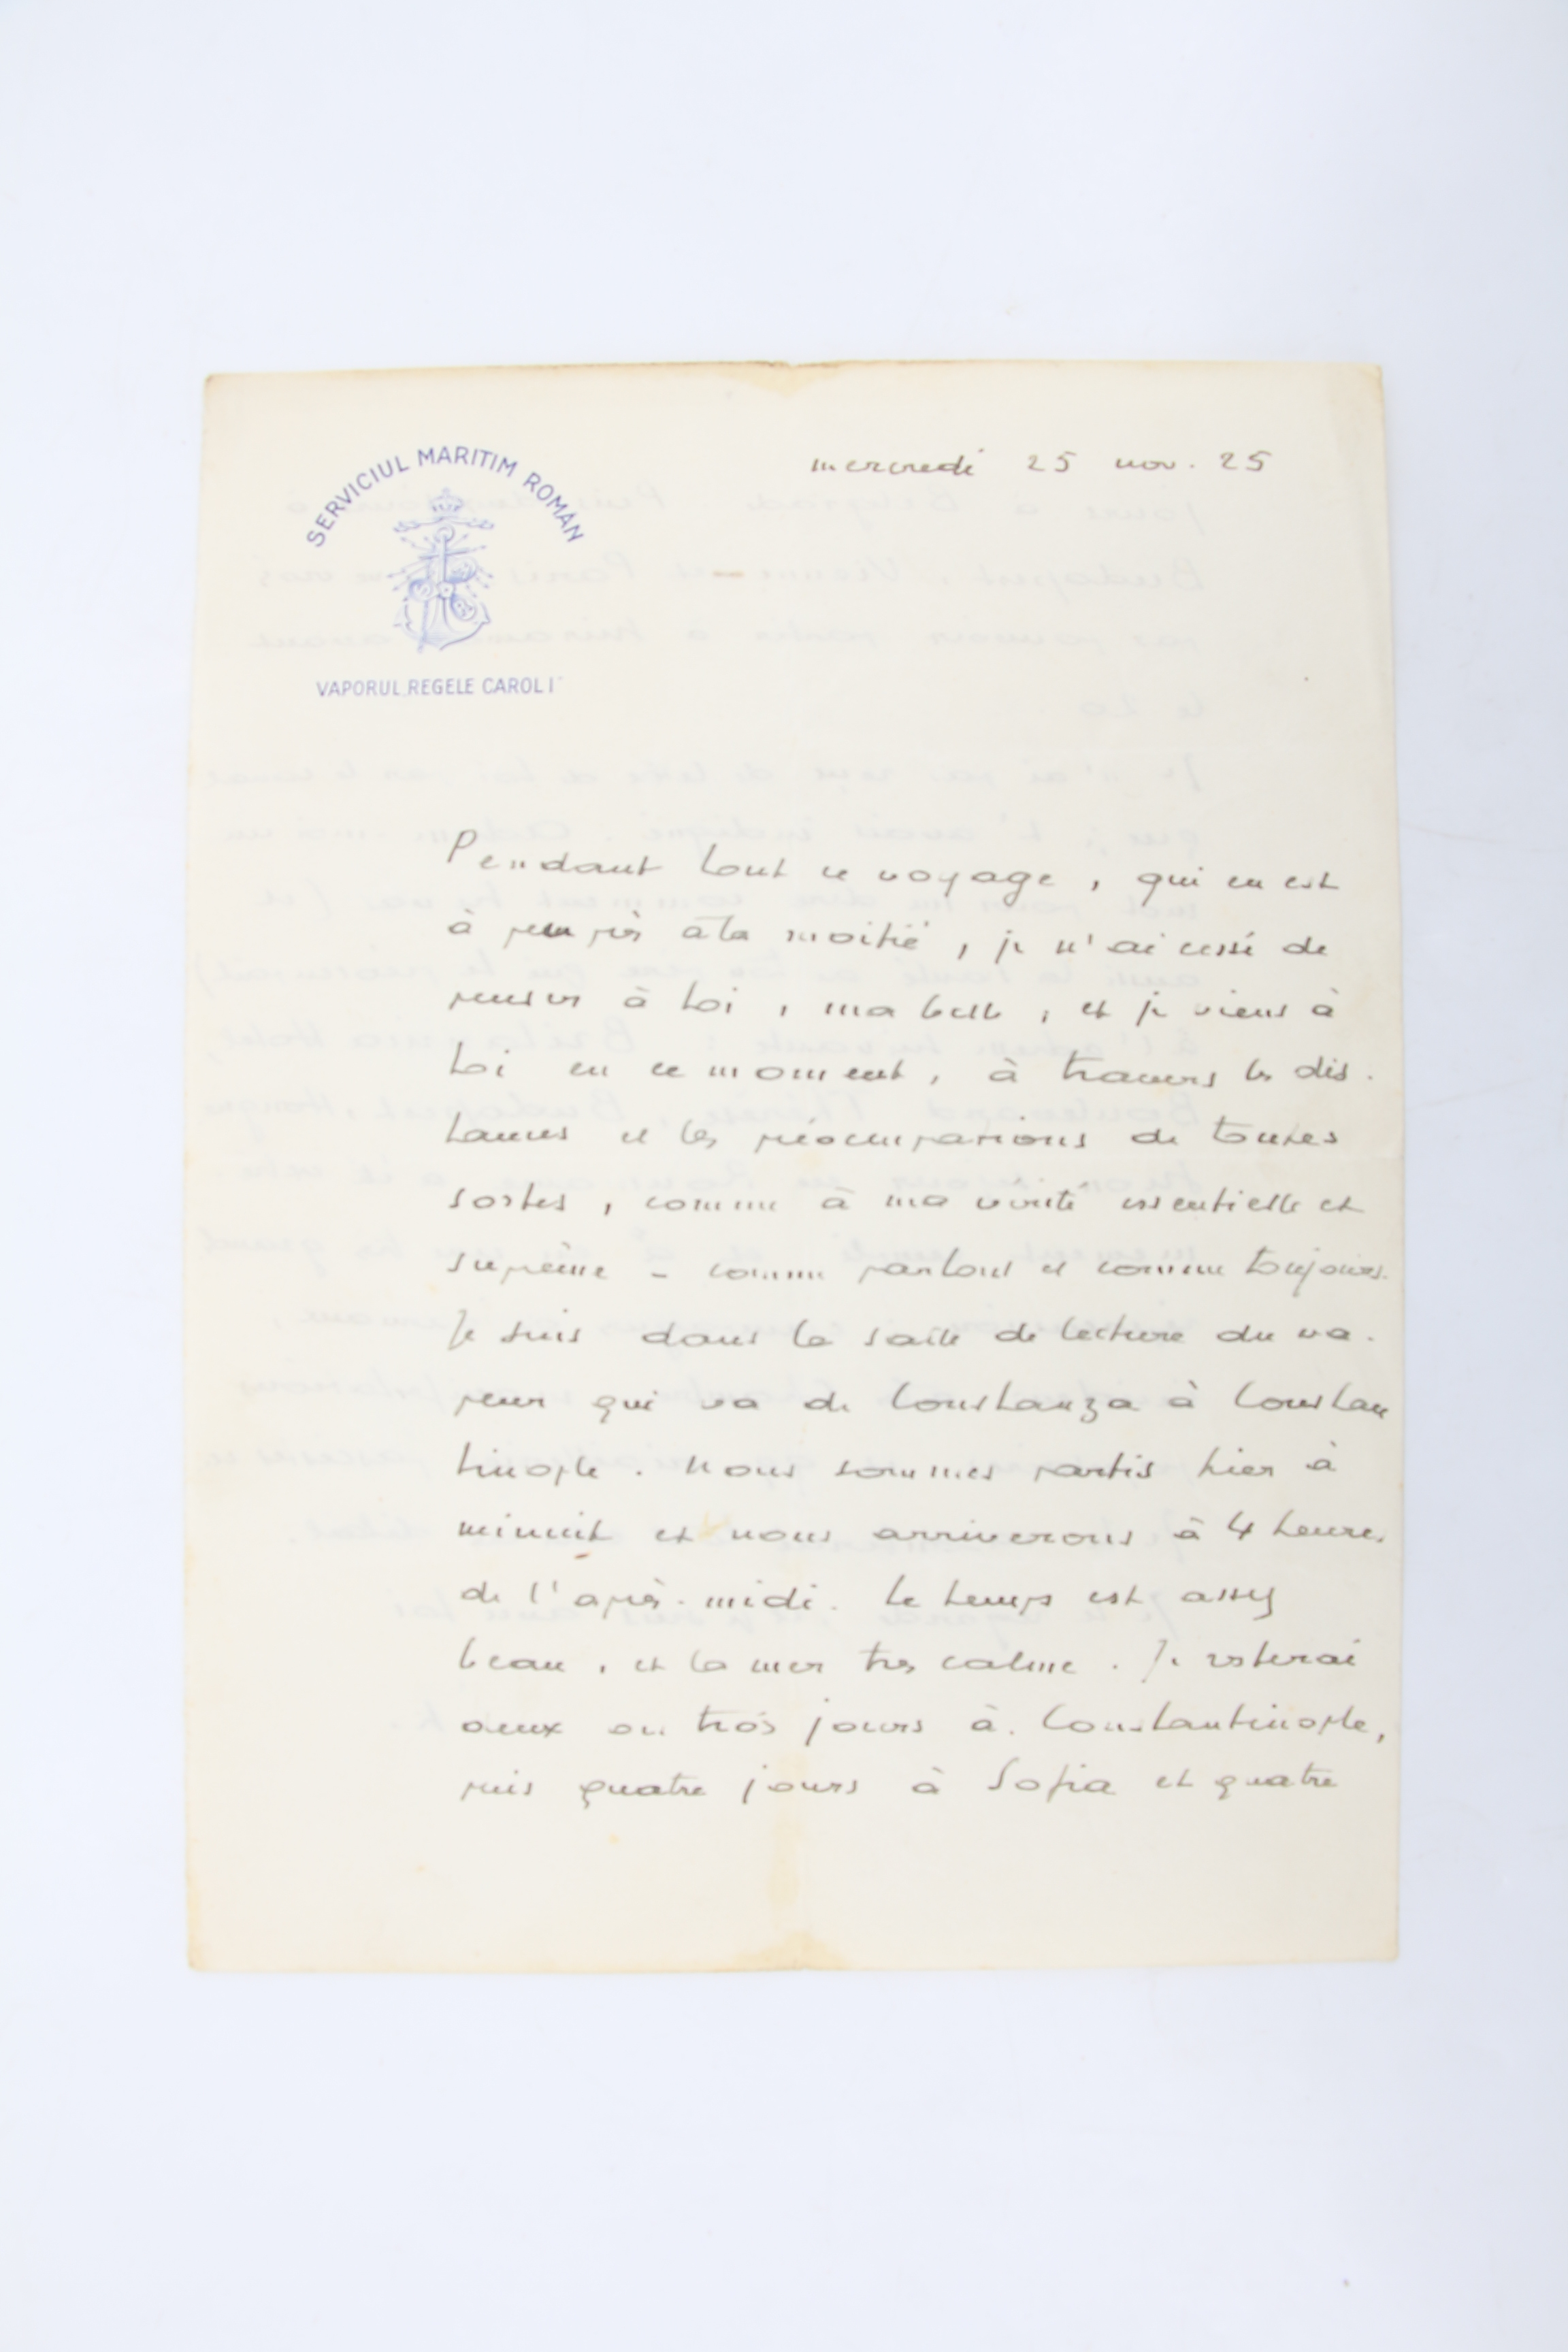 SERVICIUL MARITIM ROMÂN
VAPORUL REGELE CAROL I
mercredi 25 nov. 25
Pendant tout ce voyage, qui en est
à peu près à la moitié, je n'ai cessé de
penser à toi, ma belle, et je viens à
toi en ce moment, à travers les dis-
tances et les préoccupations de toutes
sortes, comme à ma vérité essentielle et
suprême - comme partout et comme toujours.
Je suis dans la salle de lecture du va-
peur qui va de Constanza à Constan
tinople. Nous sommes partis hier à
minuit et nous arriverons à 4 heures
de l'après-midi. Le temps est assez
beau, et la mer très calme. Je resterai
deux ou trois jours à Constantinople,
puis quatre jours à Sofia et quatre